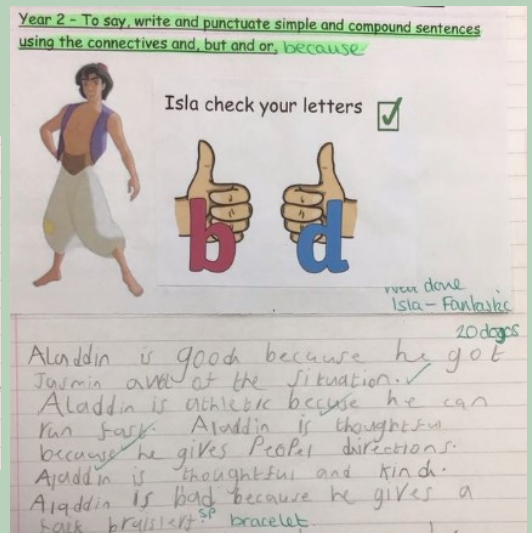 Year 2 - To say, write and punctuate simple and compound sentences
using the connectives and, but and or, because
Isla check your letters
b d
done
Isla - Fantastic
20 dojos
Aladdin is good because he got
Jasmin out of the situation.
Aladdin is athletic becuse he can
run fast. Aladdin is thoughtful
because he gives Peopel directions.
Aladdin is thoughtful and kind.
Aladdin is bad because he gives a
sp
bracelet.